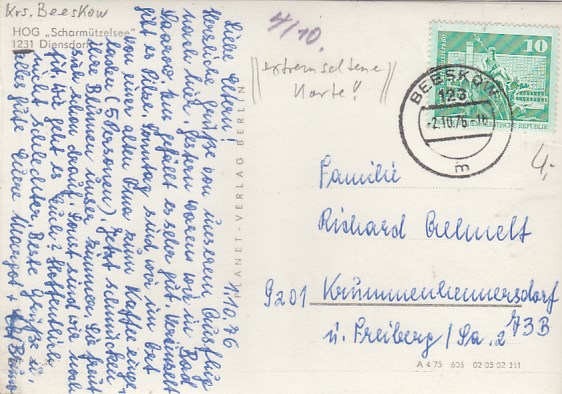 Krs. Beeskow
HOG „Scharmützelsee"
1231 Diensdorf
4/10.
"extrem seltene
Karte!"
10
DEUTSCHE DEMOKRATISCHE REPUBLIK
BEESKOW
123
-2.10.76-16
m
4,-
1.10.76
Liebe Eltern!
Herzliche Grüße von unserem Ausflug
nach hier. Gestern waren wir in Bad
Saarow. Hier gefällt es sehr gut.
gibt es Pilse. Sonntag sind wir in
von einer alten Oma zum Kaffee einge-
laden (5 Personen). Jetzt schmücken
ihre Blumen unser Zimmer. Sie freut
sich schon drauf. Sonst sind wir noch
fit. Wie geht es Euch? Hoffentlich
nicht schlechter. Beste Grüße u.
alles gute Eure Margot +
PLANET-VERLAG BERLIN
Familie
Richard
9201 Krummenhennersdorf
ü. Freiberg/Sa. 2
73B
A 4 75 606 02 05 02 351